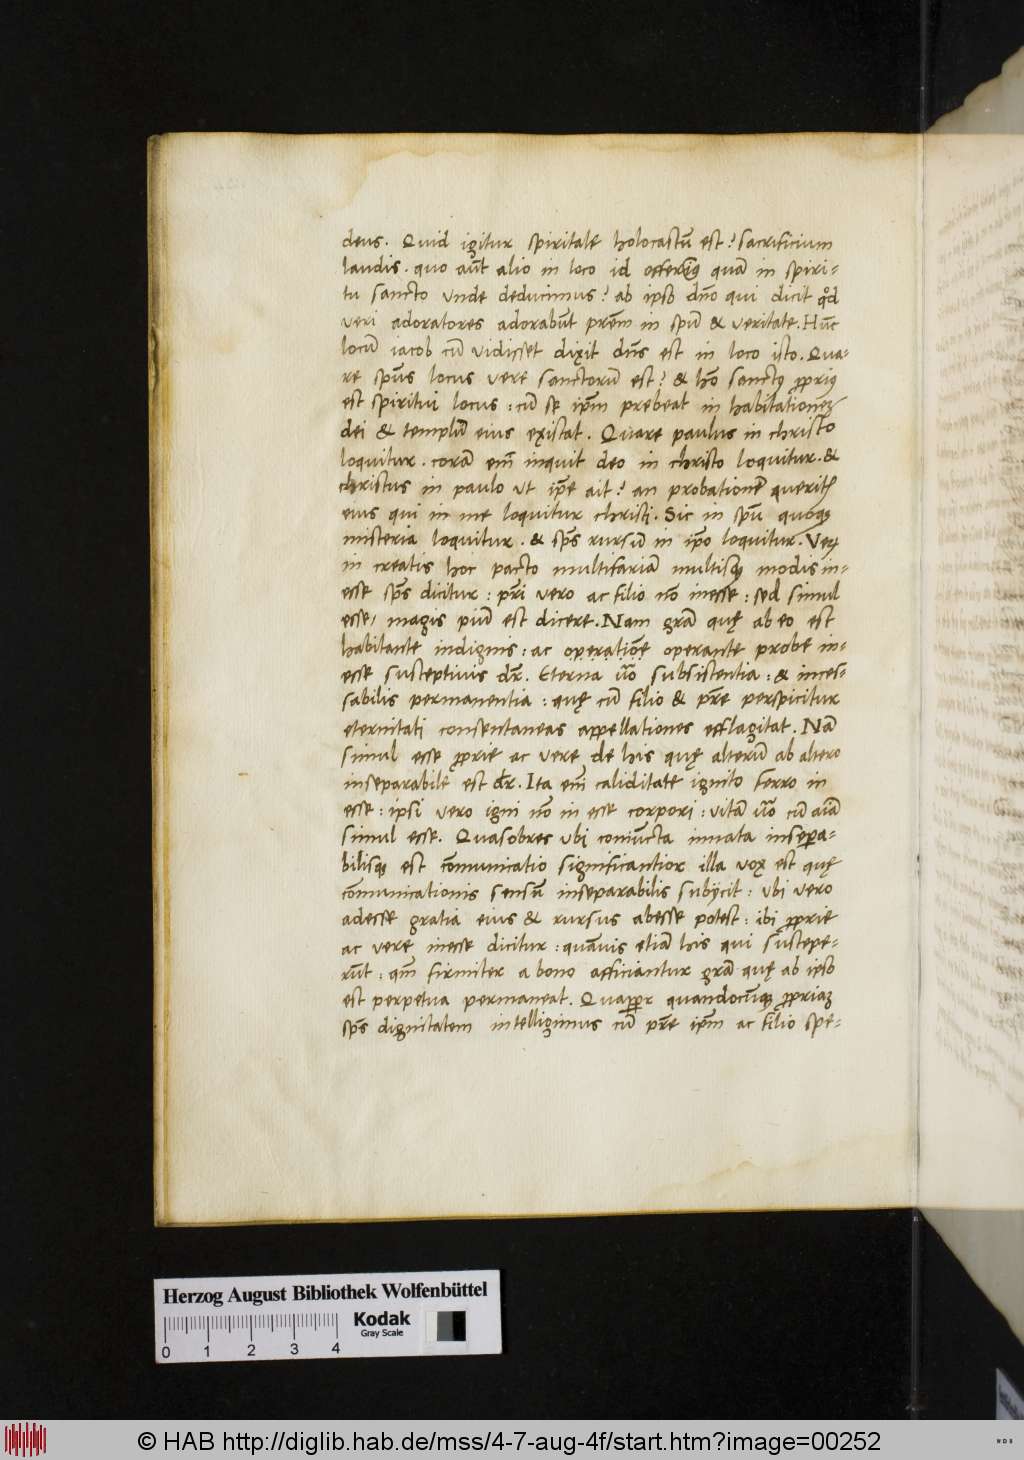 deus. Quid igitur spiritale holocastũ est? sacrificium
laudis. quo aũt alio in loco id offerimꝰ quã in spiri-
tu sancto vnde deducimus? ab ipso dño qui dicit qđ
veri adoratores adorabũt prẽm in spũ & veritate. Hũc
locũ iacob cũ vidisset dixit dñs est in loco isto. Qua-
re spũs locus vere sanctorũ est? & hõ sanctꝰ ꝓpriꝰ
est spiritui locus : cũ se ip̃m prebeat in habitationẽ
dei & templũ eius existat. Quare paulus in christo
loquitur. corã em̃ inquit deo in christo loquitur. &
christus in paulo ut ip̃e ait? an probationẽ queritis
eius qui in me loquitur christi. Sic in sp̃u quoqꝫ
misteria loquitur. & sp̃s rursũ in ip̃o loquitur. Veꝝ
in creatis hoc pacto multifariã multisqꝫ modis in-
esse sp̃s dicitur : pr̃i vero ac filio nõ inesse : sed simul
esse, magis piũ est dicere. Nam grã quę ab eo est
habitante indignis : ac operatiõe operante probe in-
esse susceptiuis dr̃. Eterna ũo subsistentia : & inces-
sabilis permanentia : quę cũ filio & pr̃e perspicitur
eternitati consentaneas appellationes efflagitat. Nã
simul esse ꝓprie ac vere de his quę alterũ ab altero
inseparabile est dr̃. Ita em̃ caliditate ignito ferro in
esse : ipsi vero igni nõ in esse corpori : vitã ũo cũ aĩa
simul esse. Quasobres vbi coniũcta innata insepara-
bilisqꝫ est cõmunicatio significantior illa vox est quę
cõmunicationis sensũ inseparabilis subijcit : vbi vero
adesse gratia eius & rursus abesse potest : ibi ꝓprie
ac vere inesse dicitur : quãuis etiã his qui suscepe-
rũt : qm̃ firmiter a bono afficiantur grã quę ab ipso
est perpetua permaneat. Quaꝓpr quandocũqꝫ ꝓpriaꝫ
sp̃s dignitatem intelligimus cũ pr̃e ip̃m ac filio spe-
Herzog August Bibliothek Wolfenbüttel
Kodak
Gray Scale
0 1 2 3 4
© HAB http://diglib.hab.de/mss/4-7-aug-4f/start.htm?image=00252